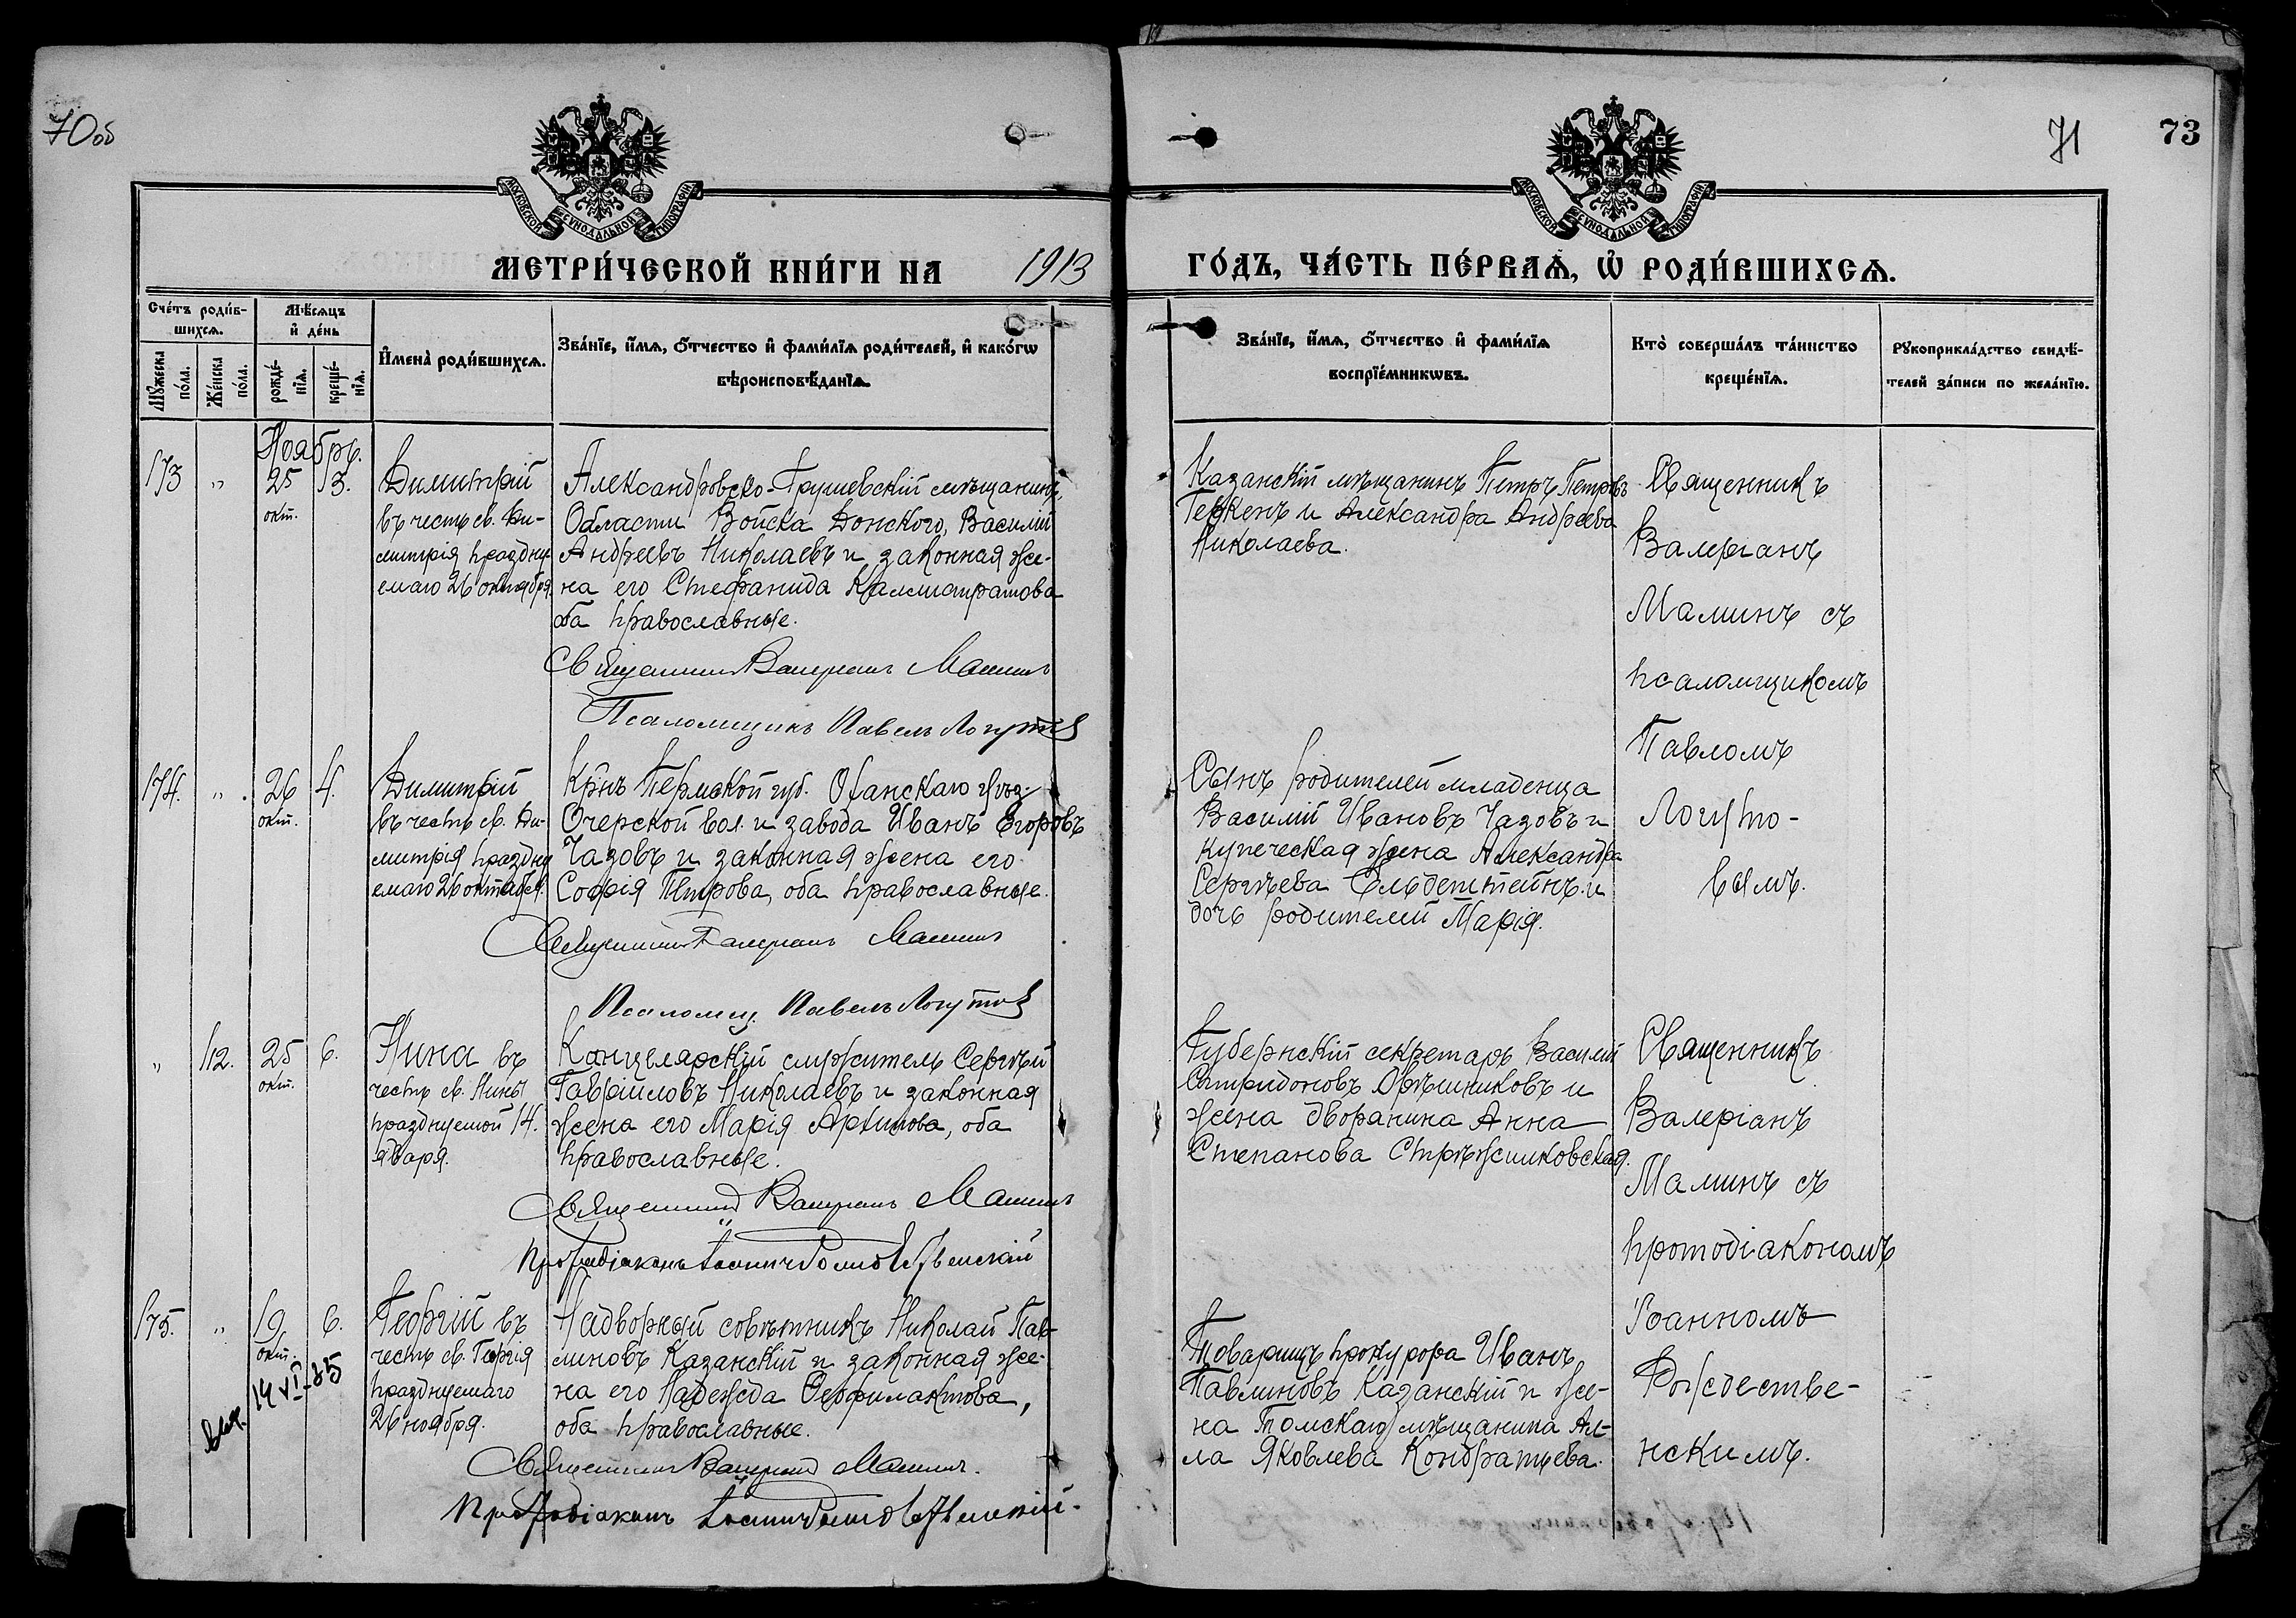 70об
71
73
МОСКОВСКОЙ СѴНОДАЛЬНОЙ ТИПОГРАФІИ
МОСКОВСКОЙ СѴНОДАЛЬНОЙ ТИПОГРАФІИ
МЕТРИ́ЧЕСКОЙ КНИ́ГИ НА 1913 ГО́ДЪ, ЧА́СТЬ ПЕ́РВАѦ, Ѡ҆ РОДИ́ВШИХСѦ.
Сче́тъ роди́в-
шихсѧ.
Мꙋ́жеска по́ла.
Же́нска по́ла.
Мѣ́сѧцъ
и҆ де́нь
рожде́-
нїѧ.
креще́-
нїѧ.
И҆мена̀ роди́вшихсѧ.
Зва́нїе, и҆́мѧ, ѻ҆́тчество и҆ фами́лїѧ роди́телей, и҆ како́гѡ
вѣроисповѣ́данїѧ.
Зва́нїе, и҆́мѧ, ѻ҆́тчество и҆ фами́лїѧ
воспрїе́мникѡвъ.
Кто̀ соверша́лъ та́инство
креще́нїѧ.
Рꙋкоприкла́дство свидѣ́-
телей за́писи по жела́нїю.
Ноябрь.
173 " 25 13.
окт.
Димитрій
въ честь св. Ди-
митрія праздну-
емаго 26 октября.
Александровско-Грушевскій мѣщанинъ,
Области Войска Донского, Василій
Андреевъ Николаевъ и законная же-
на его Стефанида Каллистратова
оба православные.
Священникъ Валеріанъ Маминъ
Псаломщикъ Павелъ Логутовъ
Казанскій мѣщанинъ Петръ Петровъ
Геркенъ и Александра Андреева
Николаева.
Священникъ
Валеріанъ
Маминъ съ
псаломщикомъ
Павломъ
Логуто-
вымъ.
174. " 26 4.
окт.
Димитрій
въ честь св. Ди-
митрія праздну
емаго 26 октября.
Кр̃нъ Пермской губ. Оханскаго уѣз.
Очерской вол. и завода Иванъ Егоровъ
Чазовъ и законная жена его
Софія Петрова, оба православные.
Священникъ Валеріанъ Маминъ
Псаломщ. Павелъ Логутовъ
Сынъ родителей младенца
Василій Ивановъ Чазовъ и
купеческая жена Александра
Сергѣева и
дочь родителей Марія.
" 112. 25 6.
окт.
Нина въ
честь св. Нины
празднуемой 14.
января.
Канцелярскій служитель Сергѣй
Гавріиловъ Николаевъ и законная
жена его Марія Архипова, оба
православные.
Священникъ Валеріанъ Маминъ
Протодіаконъ Іоаннъ Рождественскій
Губернскій секретарь Василій
Спиридоновъ Орѣшниковъ и
жена дворянина Анна
Степанова Стрѣжниковская.
Священникъ
Валеріанъ
Маминъ съ
протодіакономъ
Іоанномъ
Рождестве-
нскимъ.
175. " 19 6.
окт.
14 VI-85
Георгій въ
честь св. Георгія
празднуемаго
26 ноября.
Надворный совѣтникъ Николай Пав-
линовъ Казанскій и законная же-
на его Надежда Ѳеофилактова,
оба православные.
Священникъ Валеріанъ Маминъ.
Протодіаконъ Іоаннъ Рождественскій.
Товарищъ прокурора Иванъ
Павлиновъ Казанскій и же-
на Томскаго мѣщанина Ал-
ла Яковлева Кондратьева.